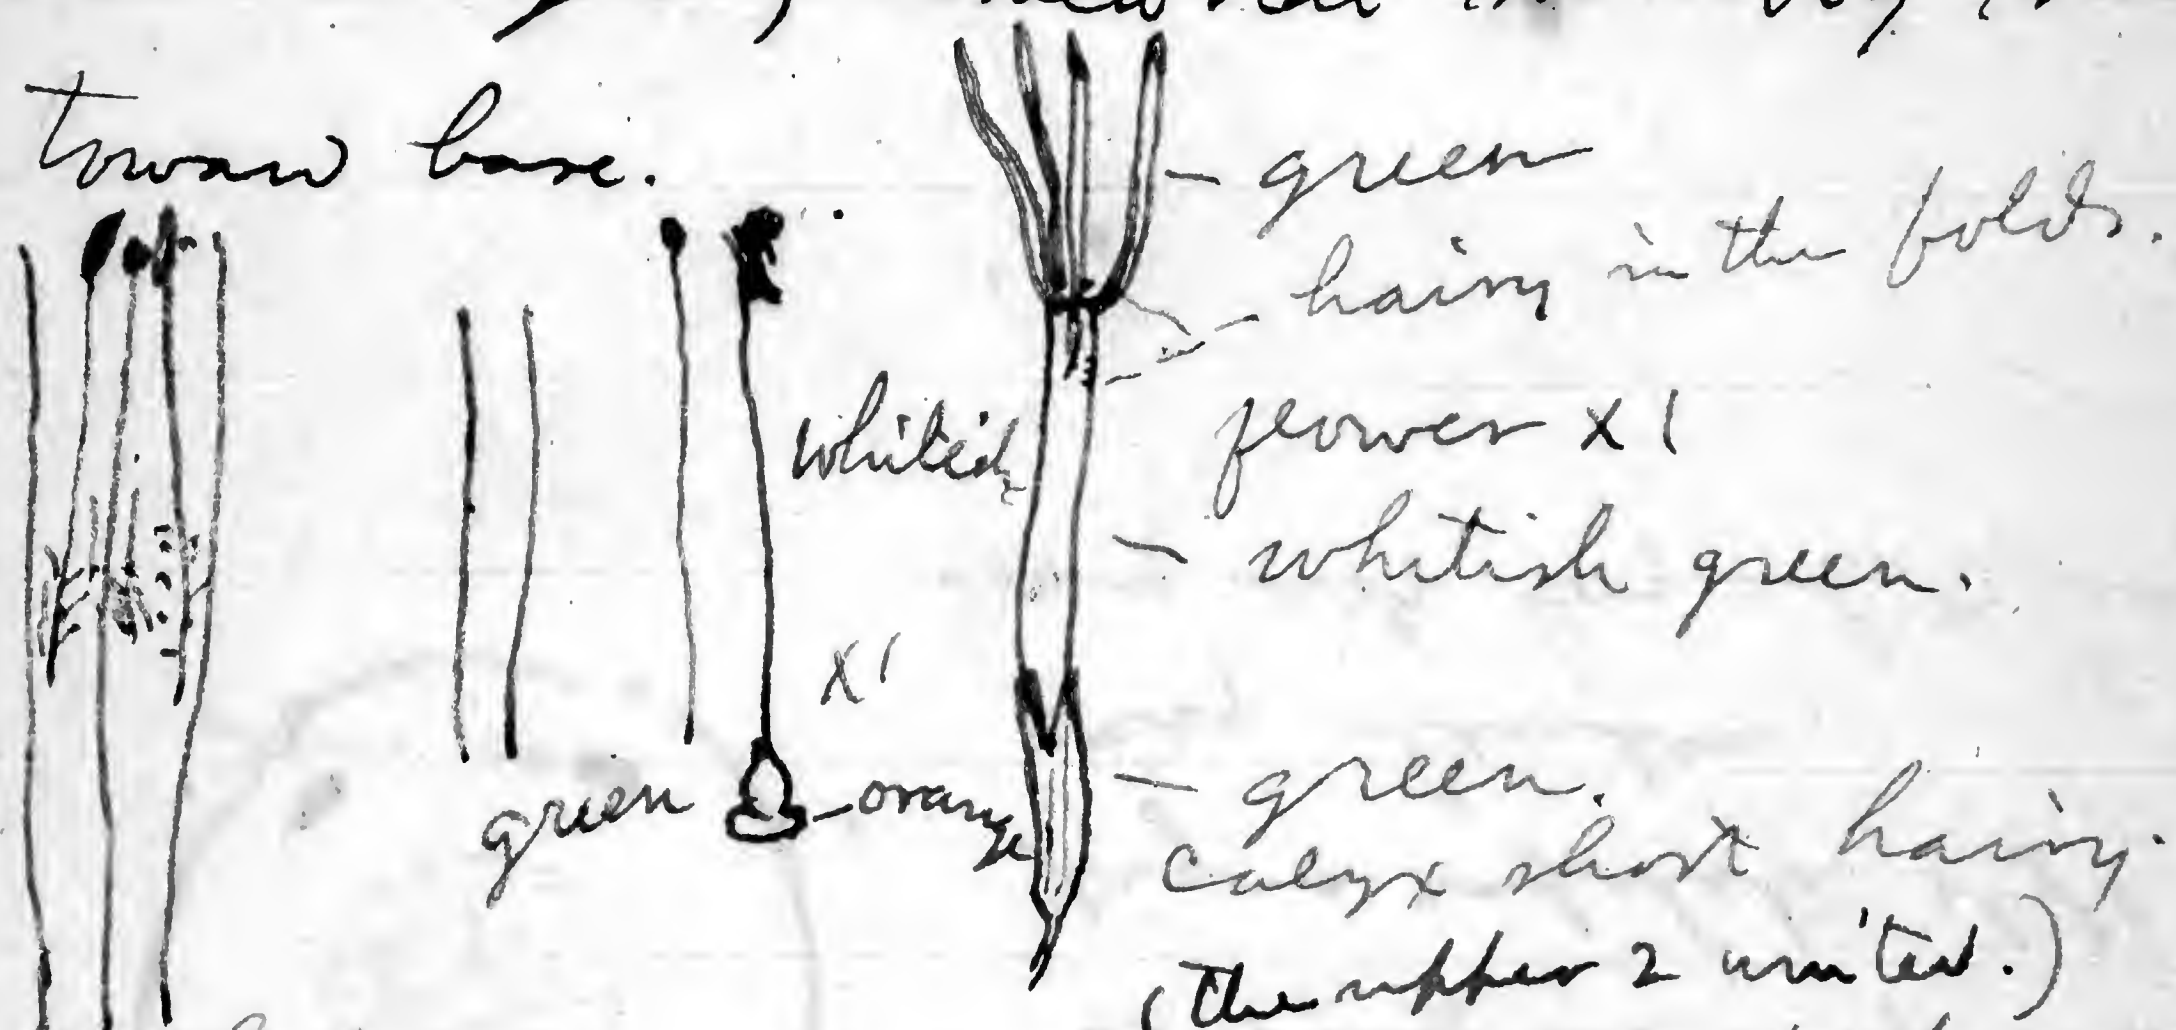 toward base.
green
hairy in the folds.
flower x 1
whitish
whitish green.
x1
green
orange
green.
calyx short hairy.
(the upper 2 united.)